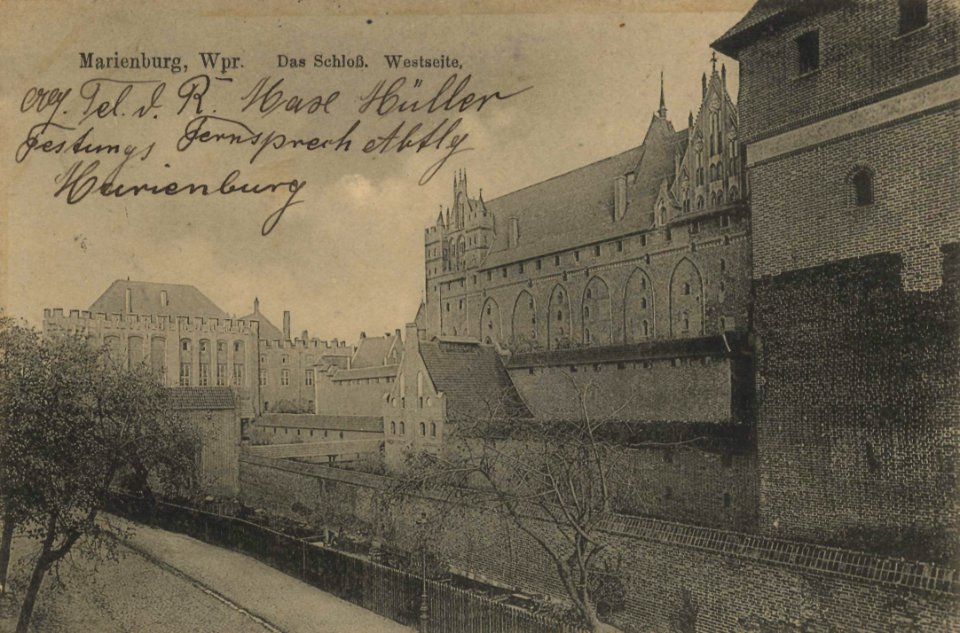 Marienburg, Wpr. Das Schloß. Westseite.
Tel. d. R. Max Hüller
Festungs Fernsprech Abtlg
Marienburg